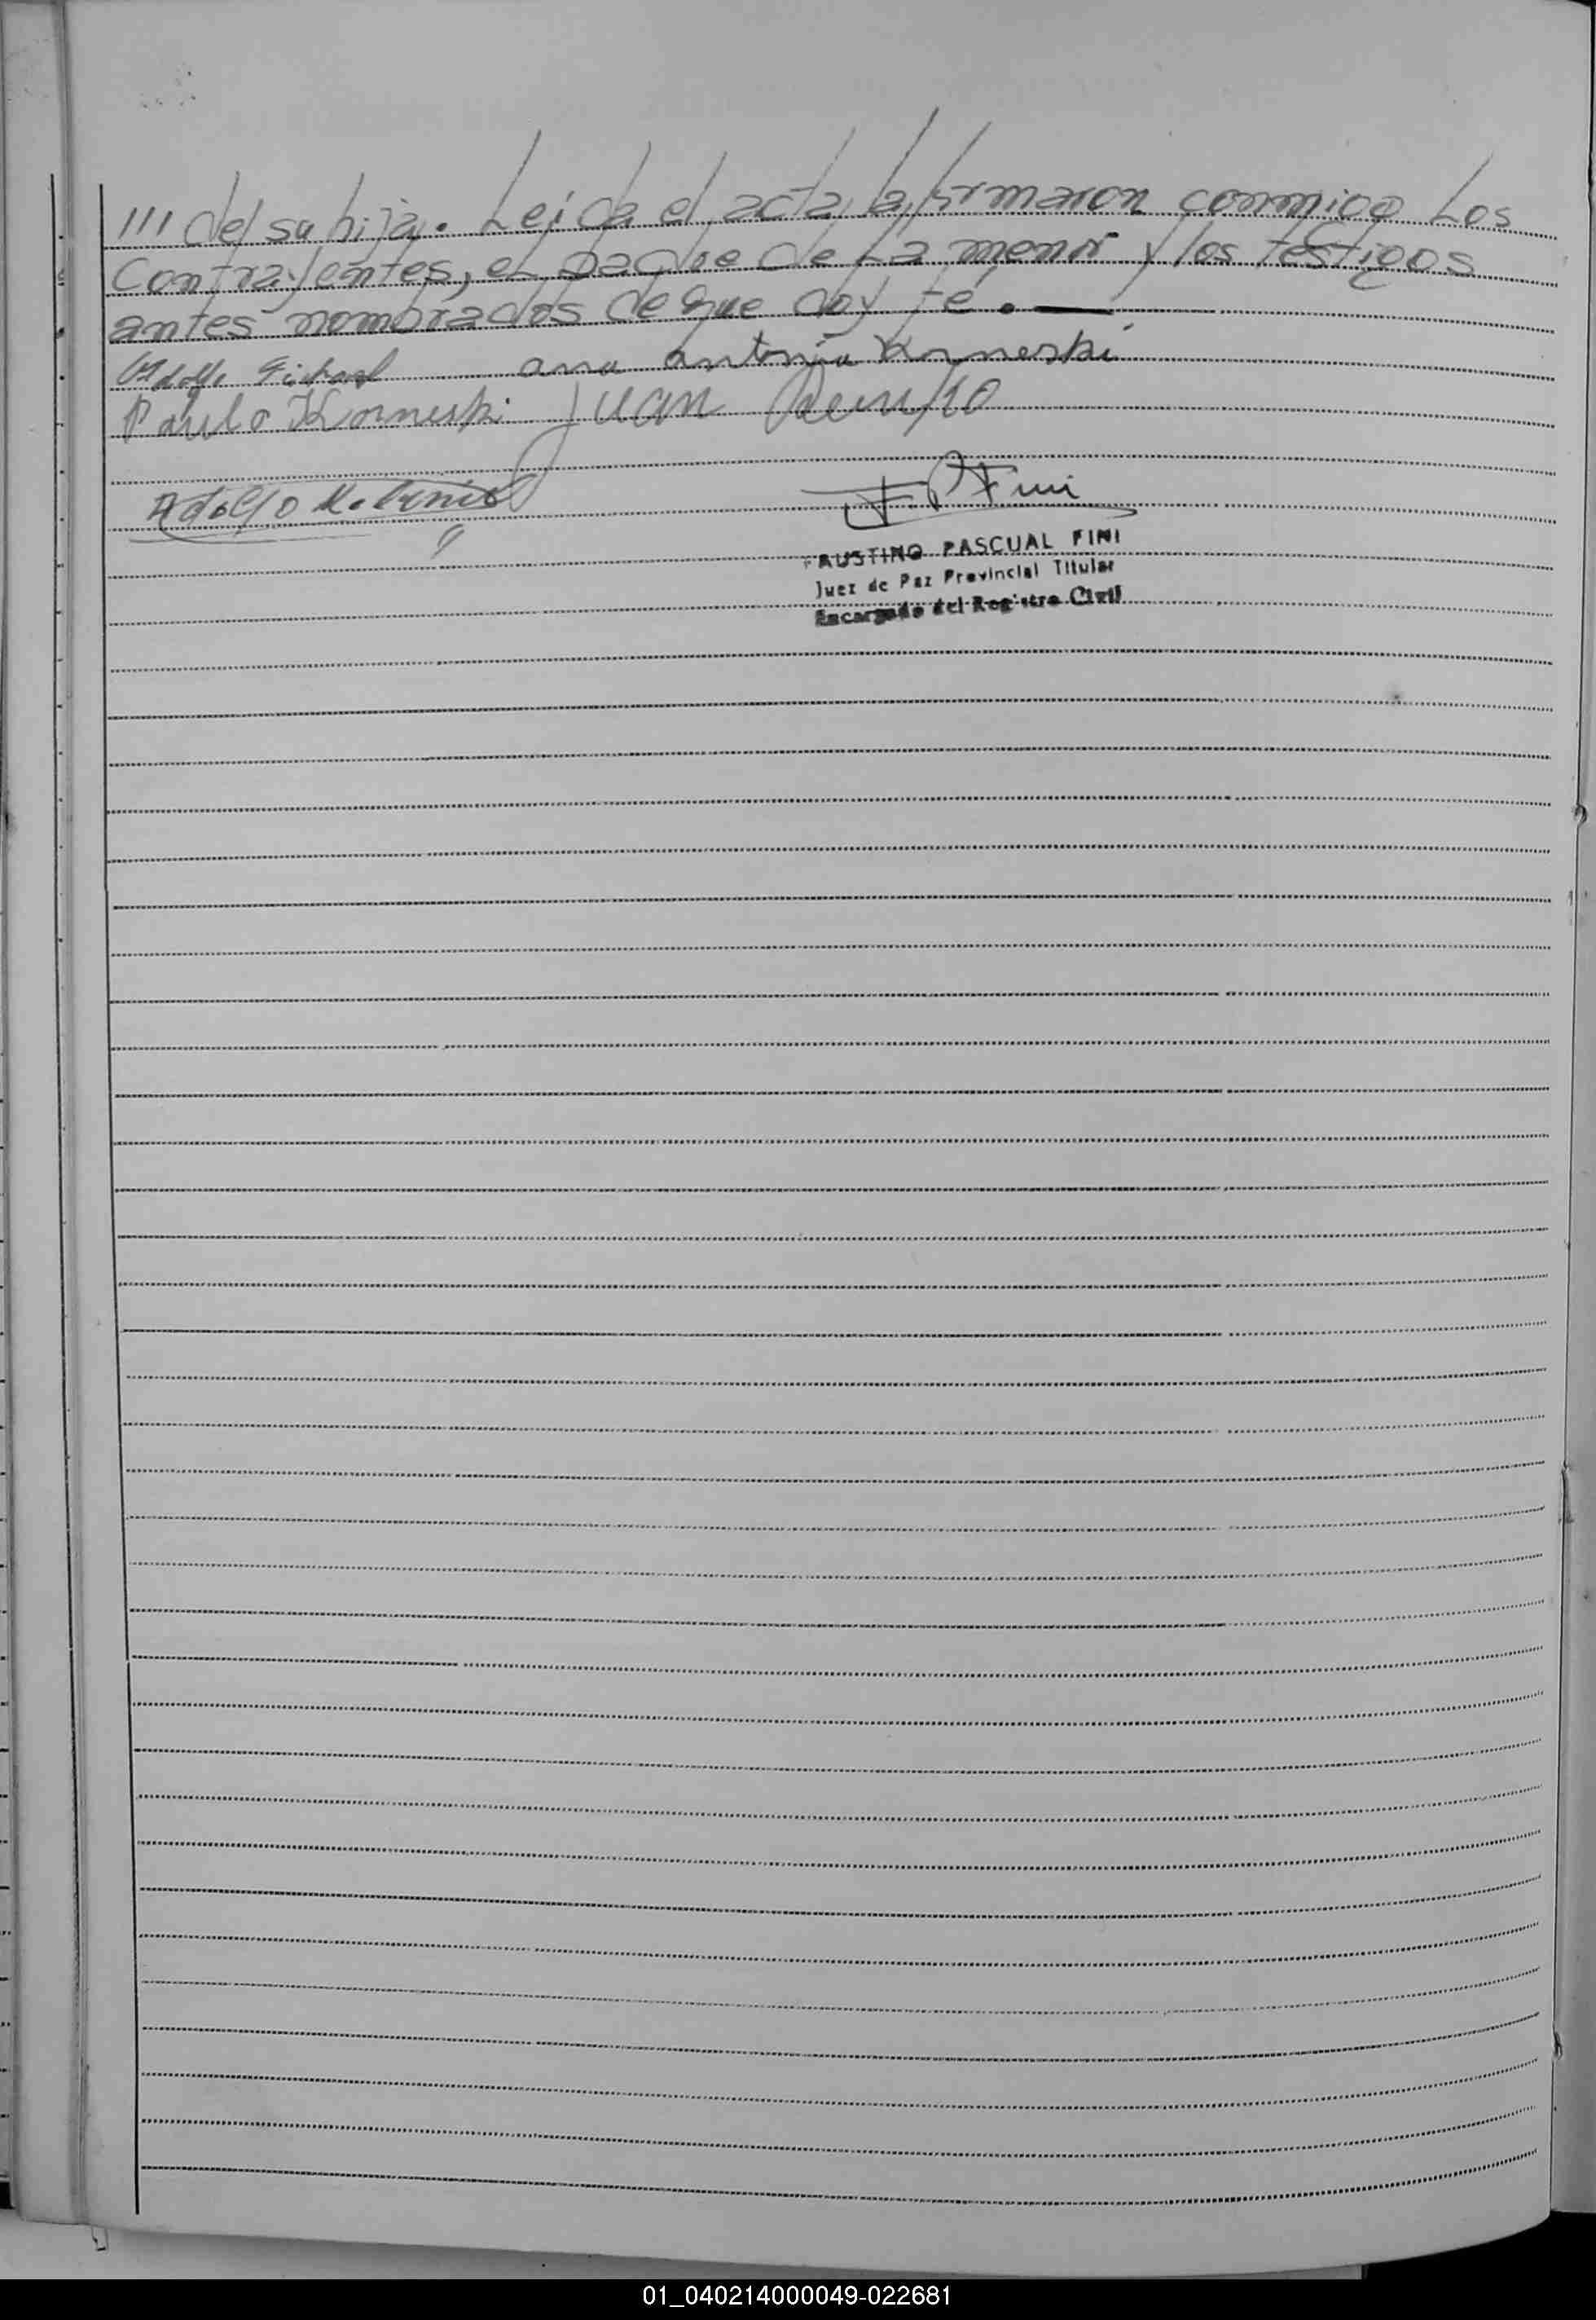 /// del su hija. Leída el acta, la firmaron conmigo Los
Contrayentes, el padre de La menor y los testigos
antes nombrados de que doy fé. —
Adolfo
ana antonia Korneski
Paulo Korneski Juan
Adolfo
F P Fini
FAUSTINO PASCUAL FINI
Juez de Paz Provincial Titular
Encargado del Registro Civil
01_040214000049-022681